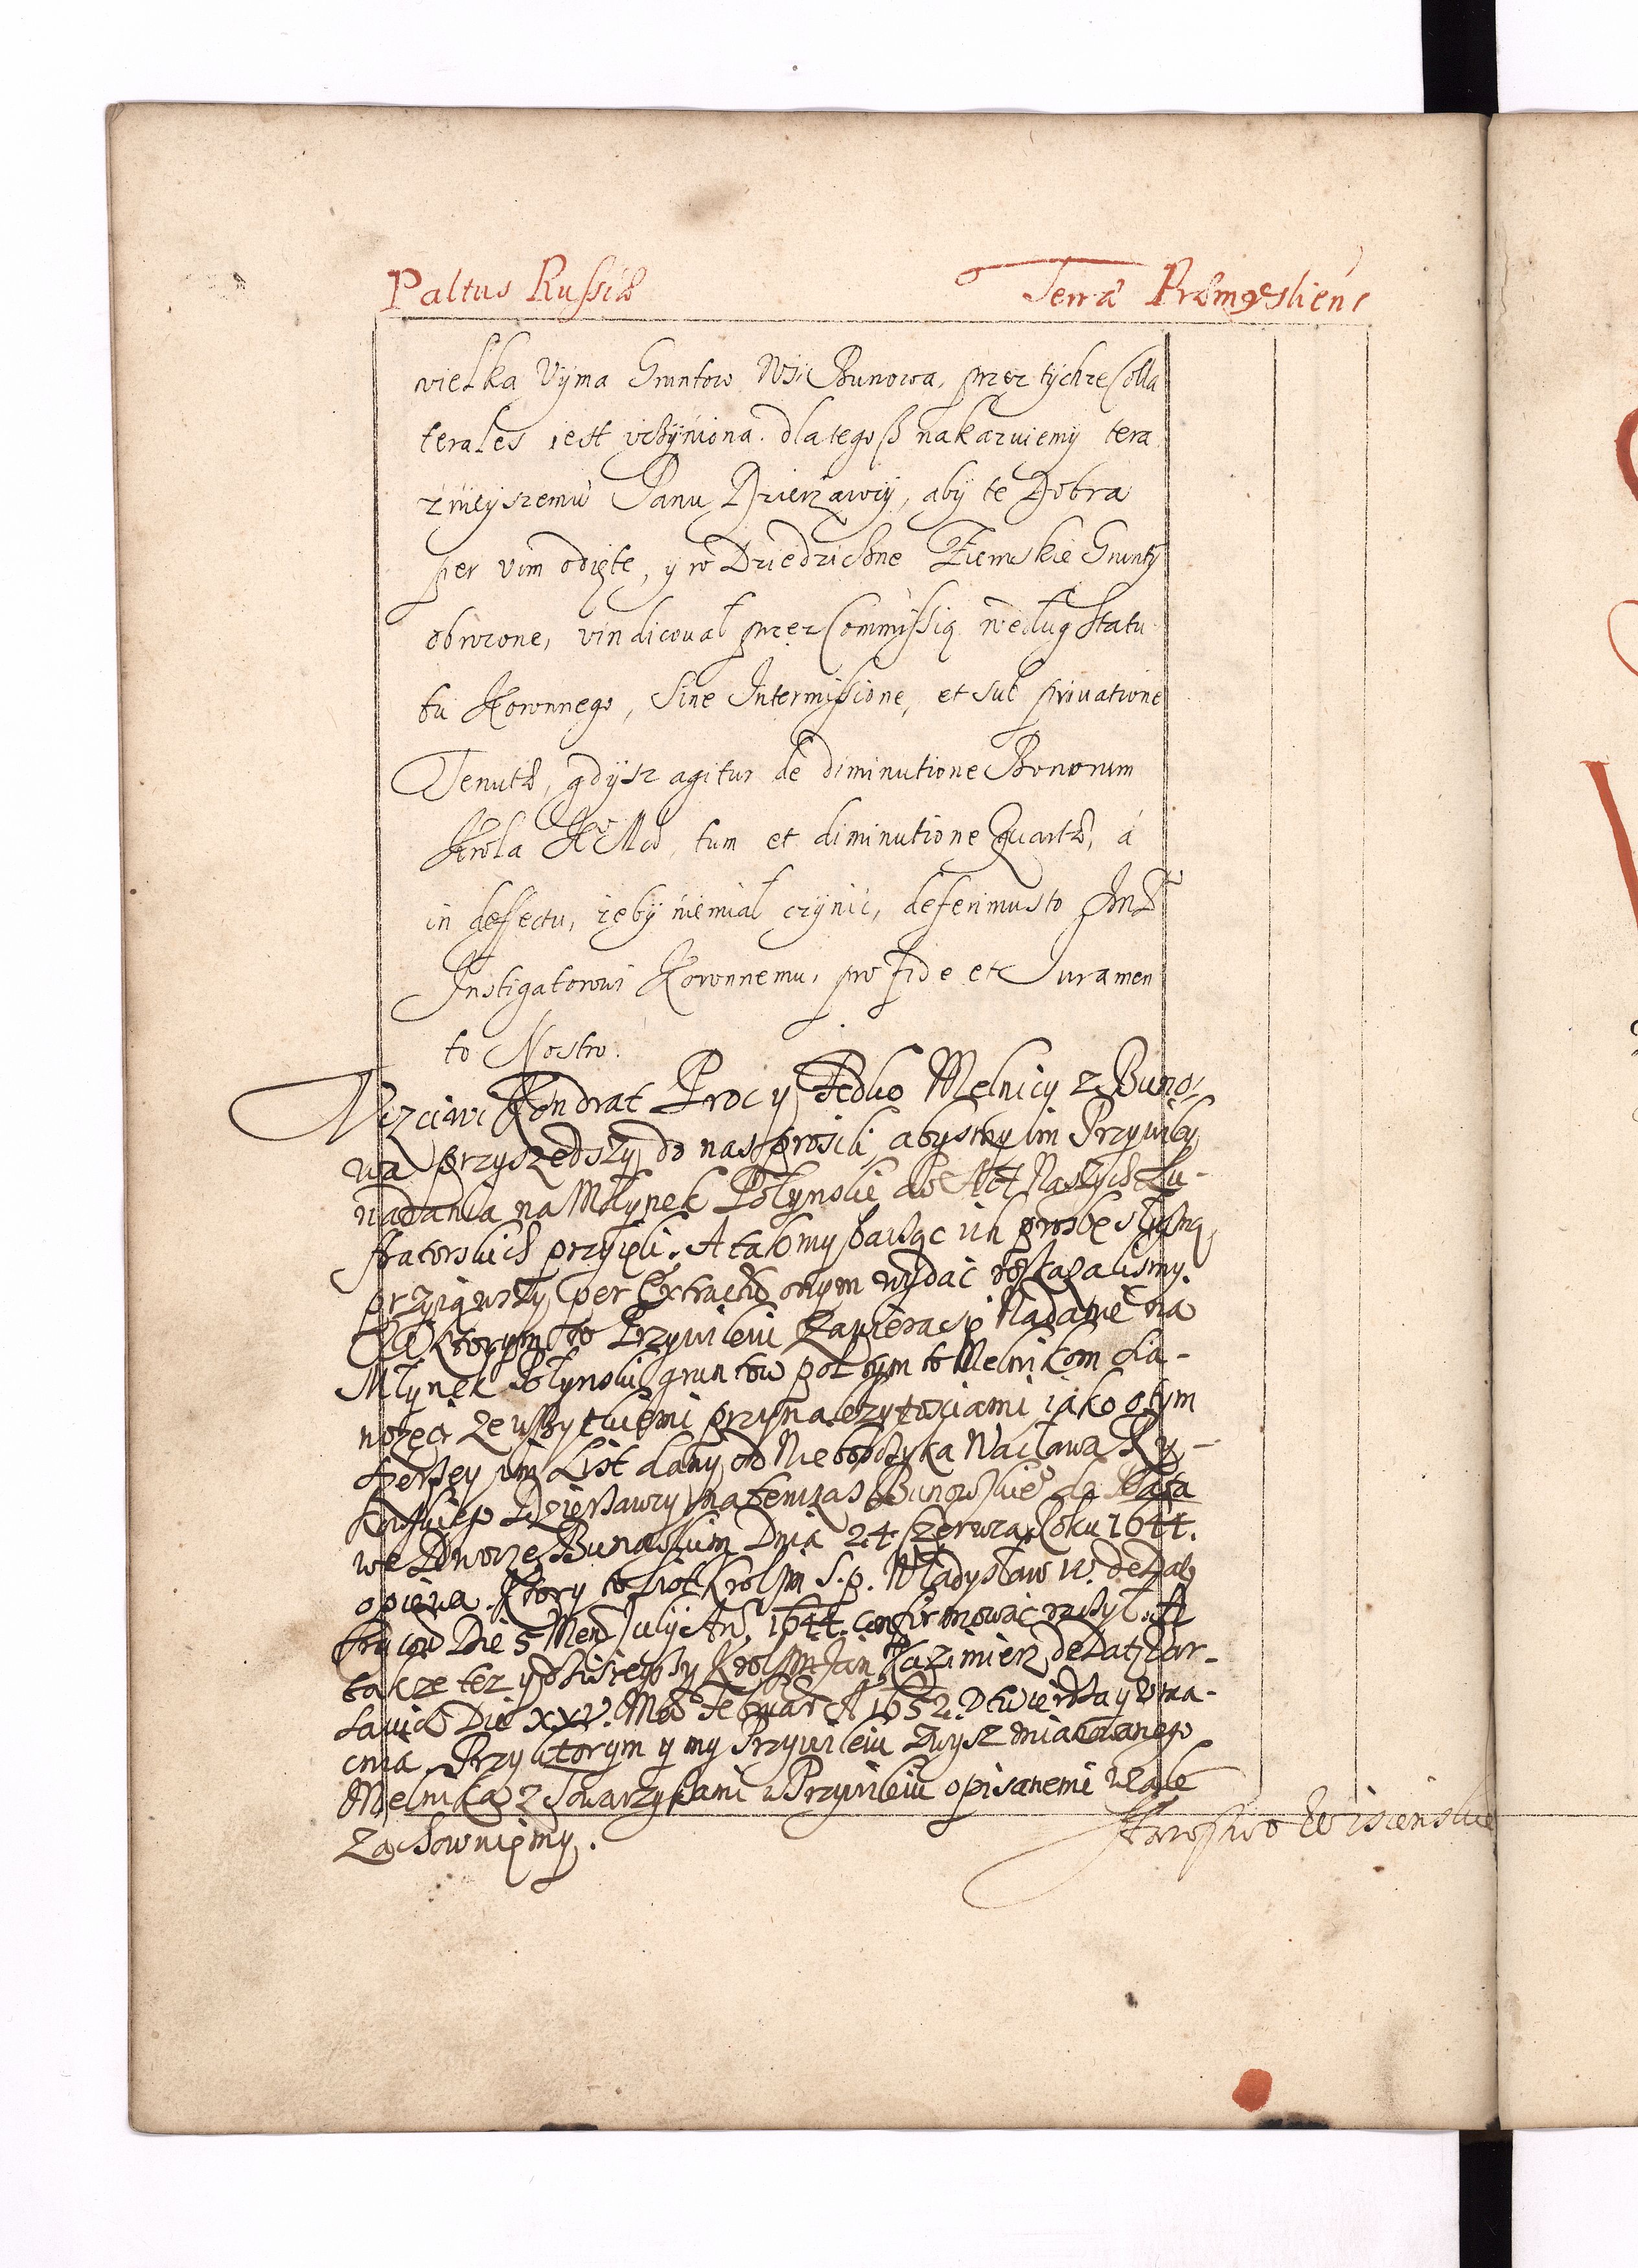 Paltus Russiæ
Terrã Præmysliens
wielka Vyma Gruntow Wsi Bunowa, przez tychze Colla
terales iest vczyniona. dlategosz nakazuiemy tera
znieyszemu Panu Dzierzawcy, aby te Dobra
per vim odięte, y w Dziedziczne Ziemskie Grunty
obrocone, vindicował przez Commissią według Statu
tu Koronnego, sine Intermissione, et sub privatione
Tenutæ, gdysz agitur de diminutione Bonorum
Krola Kº Mci, tum et diminutione Quartæ, á
in deffectu, zęby niemiał czynic, deferimus to
Instigatorowi Koronnemu, pro fide et Juramen
to Nostro.
Vczciwi Kondrat Proc y Fedko Melnicy z Buno-
wa przyszedszy do nas prosili, abysmy im Przywiley
nadania na Młynek do Act Naszych Lu-
stratorskich przyięli. A tak my bacząc ich prosbę słuszną
przyiąwszy per Extractũ onym wydać roskazalismy.
W ktorym to Przywileiu zawiera się Nadanie na
Młynek gruntow poł tym to Melnikom
ze wszytkiemi przynalezytosciami iako o tym
szerszey im List dany od Nieboszczyka Wacława
Dzierzawcy natenczas Bunowskiº
we Dworze Bunowskim Dnia 24 Czerwca Roku 1644.
opiewa. Ktory to List Krol Jm S. p. Władysław IV. de Dat
Die 5 Mens Julij An. 1644. confirmować raczył. A
takze tez y Krol Jm Jan Kazimierz de Dat War-
saviæ Die XXV. Februar A 1652. Stwierdza y vma-
cnia. Przy ktorym y my Przywileiu zwysz mianowanego
Melnika z Towarzyszami w Przywileiu opisanemi wcale
Zachowuięmy.
Starostwo